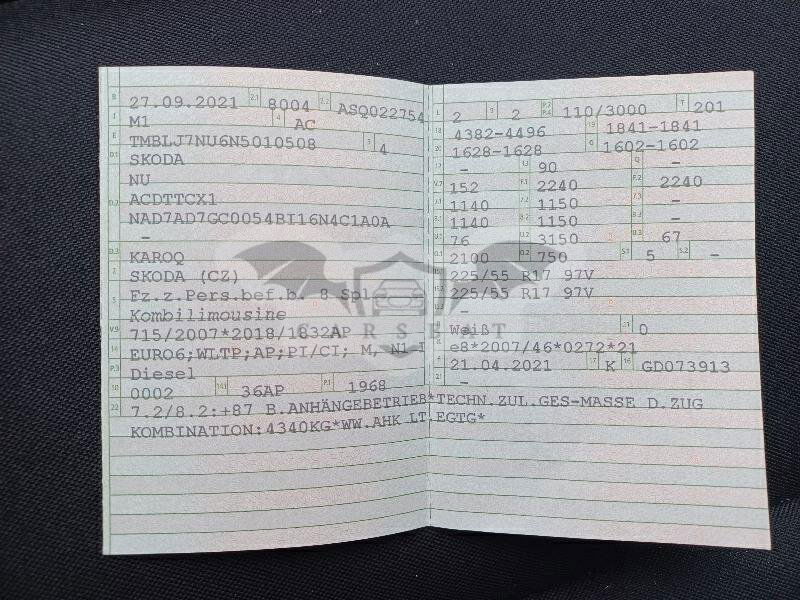 B 27.09.2021 2.1 8004 2.2 ASQ022754
J M1 4 AC
E TMBLJ7NU6N5010508 3 4
D.1 SKODA
NU
D.2 ACDTTCX1
NAD7AD7GC0054BI16N4C1A0A
-
D.3 KAROQ
2 SKODA (CZ)
5 Fz.z.Pers.bef.b. 8 Spl
Kombilimousine
V.9 715/2007*2018/1832AP
14 EURO6;WLTP;AP;PI/CI; M, N1 I
P.3 Diesel
10 0002 14.1 36AP P.1 1968
22 7.2/8.2:+87 B.ANHÄNGEBETRIEB*TECHN.ZUL.GES-MASSE D.ZUG
KOMBINATION:4340KG*WW.AHK LT.EGTG*
L 2 9 2 P.2 P.4 110/3000 T 201
18 4382-4496 19 1841-1841
20 1628-1628 G 1602-1602
12 - 13 90 Q -
V.7 152 F.1 2240 F.2 2240
7.1 1140 7.2 1150 7.3 -
8.1 1140 8.2 1150 8.3 -
U.1 76 U.2 3150 U.3 67
O.1 2100 O.2 750 S.1 5 S.2 -
15.1 225/55 R17 97V
15.2 225/55 R17 97V
-
R Weiß 11 0
K e8*2007/46*0272*21
6 21.04.2021 17 K 16 GD073913
21 -
CARSEAT